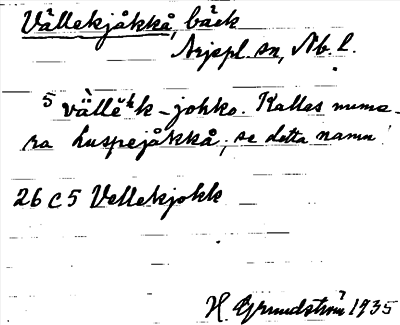 Vállekjåkkå, bäck
Arjepl. sn, Nb. l.
5 vàllēᵏk-johko. Kallas numa-
ra huspejåkkå; se detta namn!
26 C 5 Vallekjokk
H. Grundström 1935